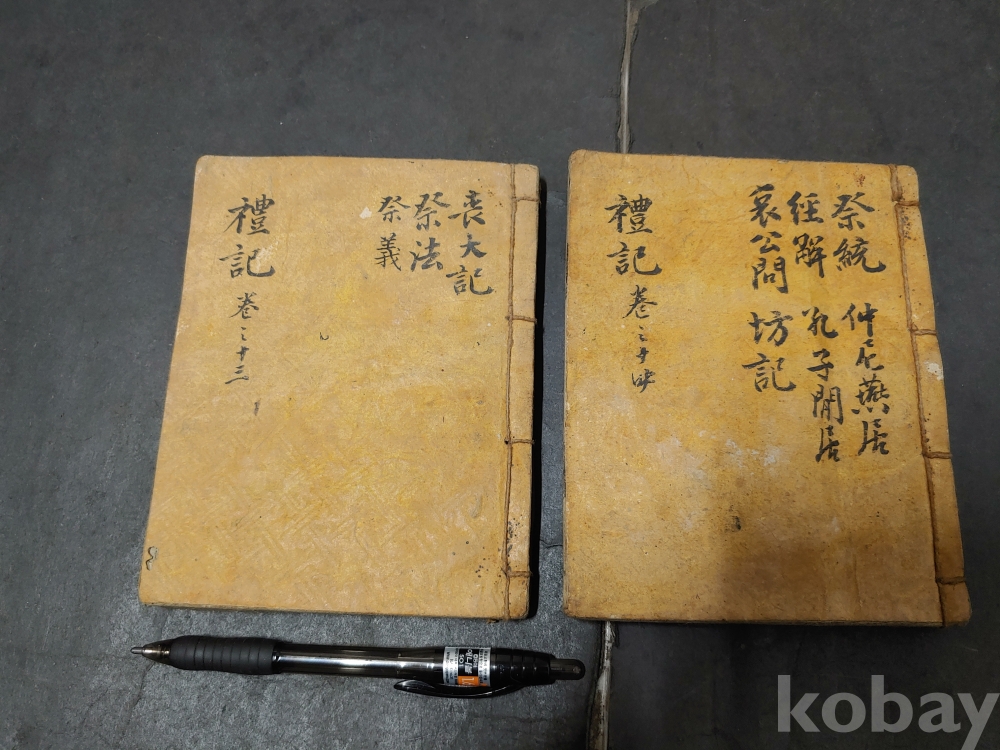 禮記 卷之十三
喪大記
祭法
祭義
禮記 卷之十四
祭統 仲尼燕居
經解 孔子閒居
哀公問 坊記
kobay